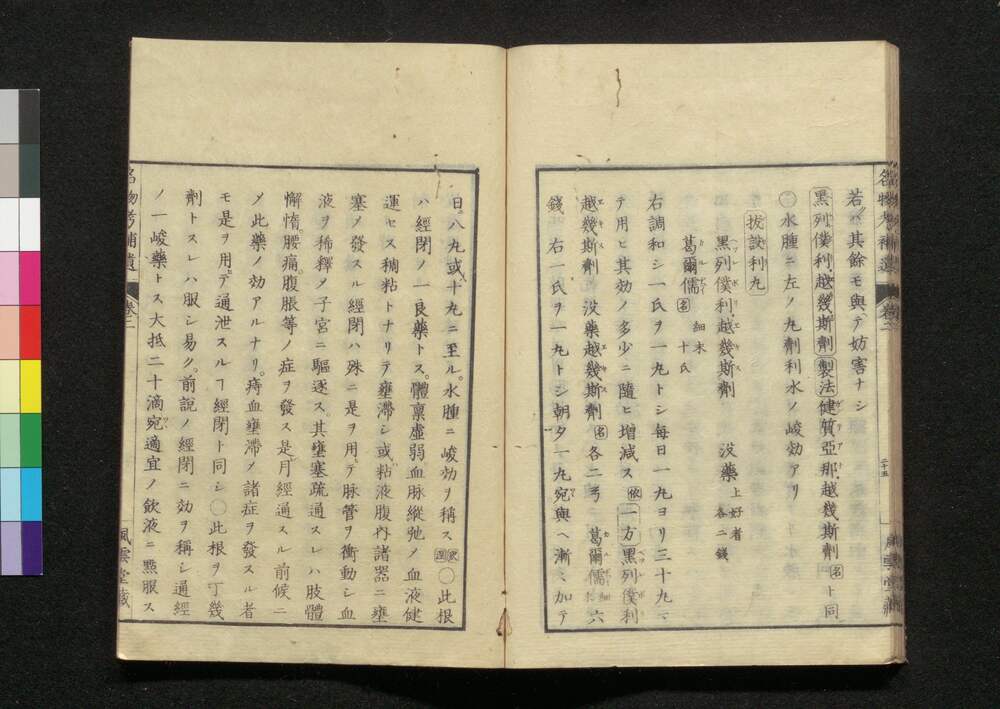 若ハ其餘モ與テ妨害ナシ
黑列僕利越幾斯劑製法健質亞那越幾斯劑名ト同
○水腫ニ左ノ丸劑利水ノ峻効アリ
拔設利丸
黑列僕利越幾斯劑 沒藥上好者 各二錢
葛爾儒名 細末 十氏
右調和シ一氏ヲ一丸トシ每日一丸ヨリ三十九ニ
テ用ヒ其効ノ多少ニ隨ヒ增減ス 一方黑列僕利
越幾斯劑 沒藥越幾斯劑名 各二弓 葛爾儒細末 六
錢 右一氏ヲ一丸トシ朝夕一丸宛與ヘ漸々加テ
日八九或ハ十九ニ至ル水腫ニ峻効ヲ稱ス ○此根
ハ經閉ノ一良藥トス體稟虛弱血脉縱弛ノ血液健
運セス稠粘トナリテ壅滯シ或粘液腹內諸器ニ壅
塞ノ發スル經閉ハ殊ニ是ヲ用テ脉管ヲ衝動シ血
液ヲ稀釋ノ子宮ニ驅逐ス其壅塞疏通スレハ肢體
懈惰腰痛腹脹等ノ症ヲ發ス是月經通スル前候ニ
ノ此藥ノ効アルナリ痔血壅滯ノ諸症ヲ發スル者
モ是ヲ用テ通泄スルヿ經閉ト同シ○此根ヲ丁幾
劑トスレハ服シ易ク前說ノ經閉ニ効ヲ稱シ通經
ノ一峻藥トス大抵二十滴宛適宜ノ飲液ニ點服ス
名物考補遺 卷二
風雲堂藏